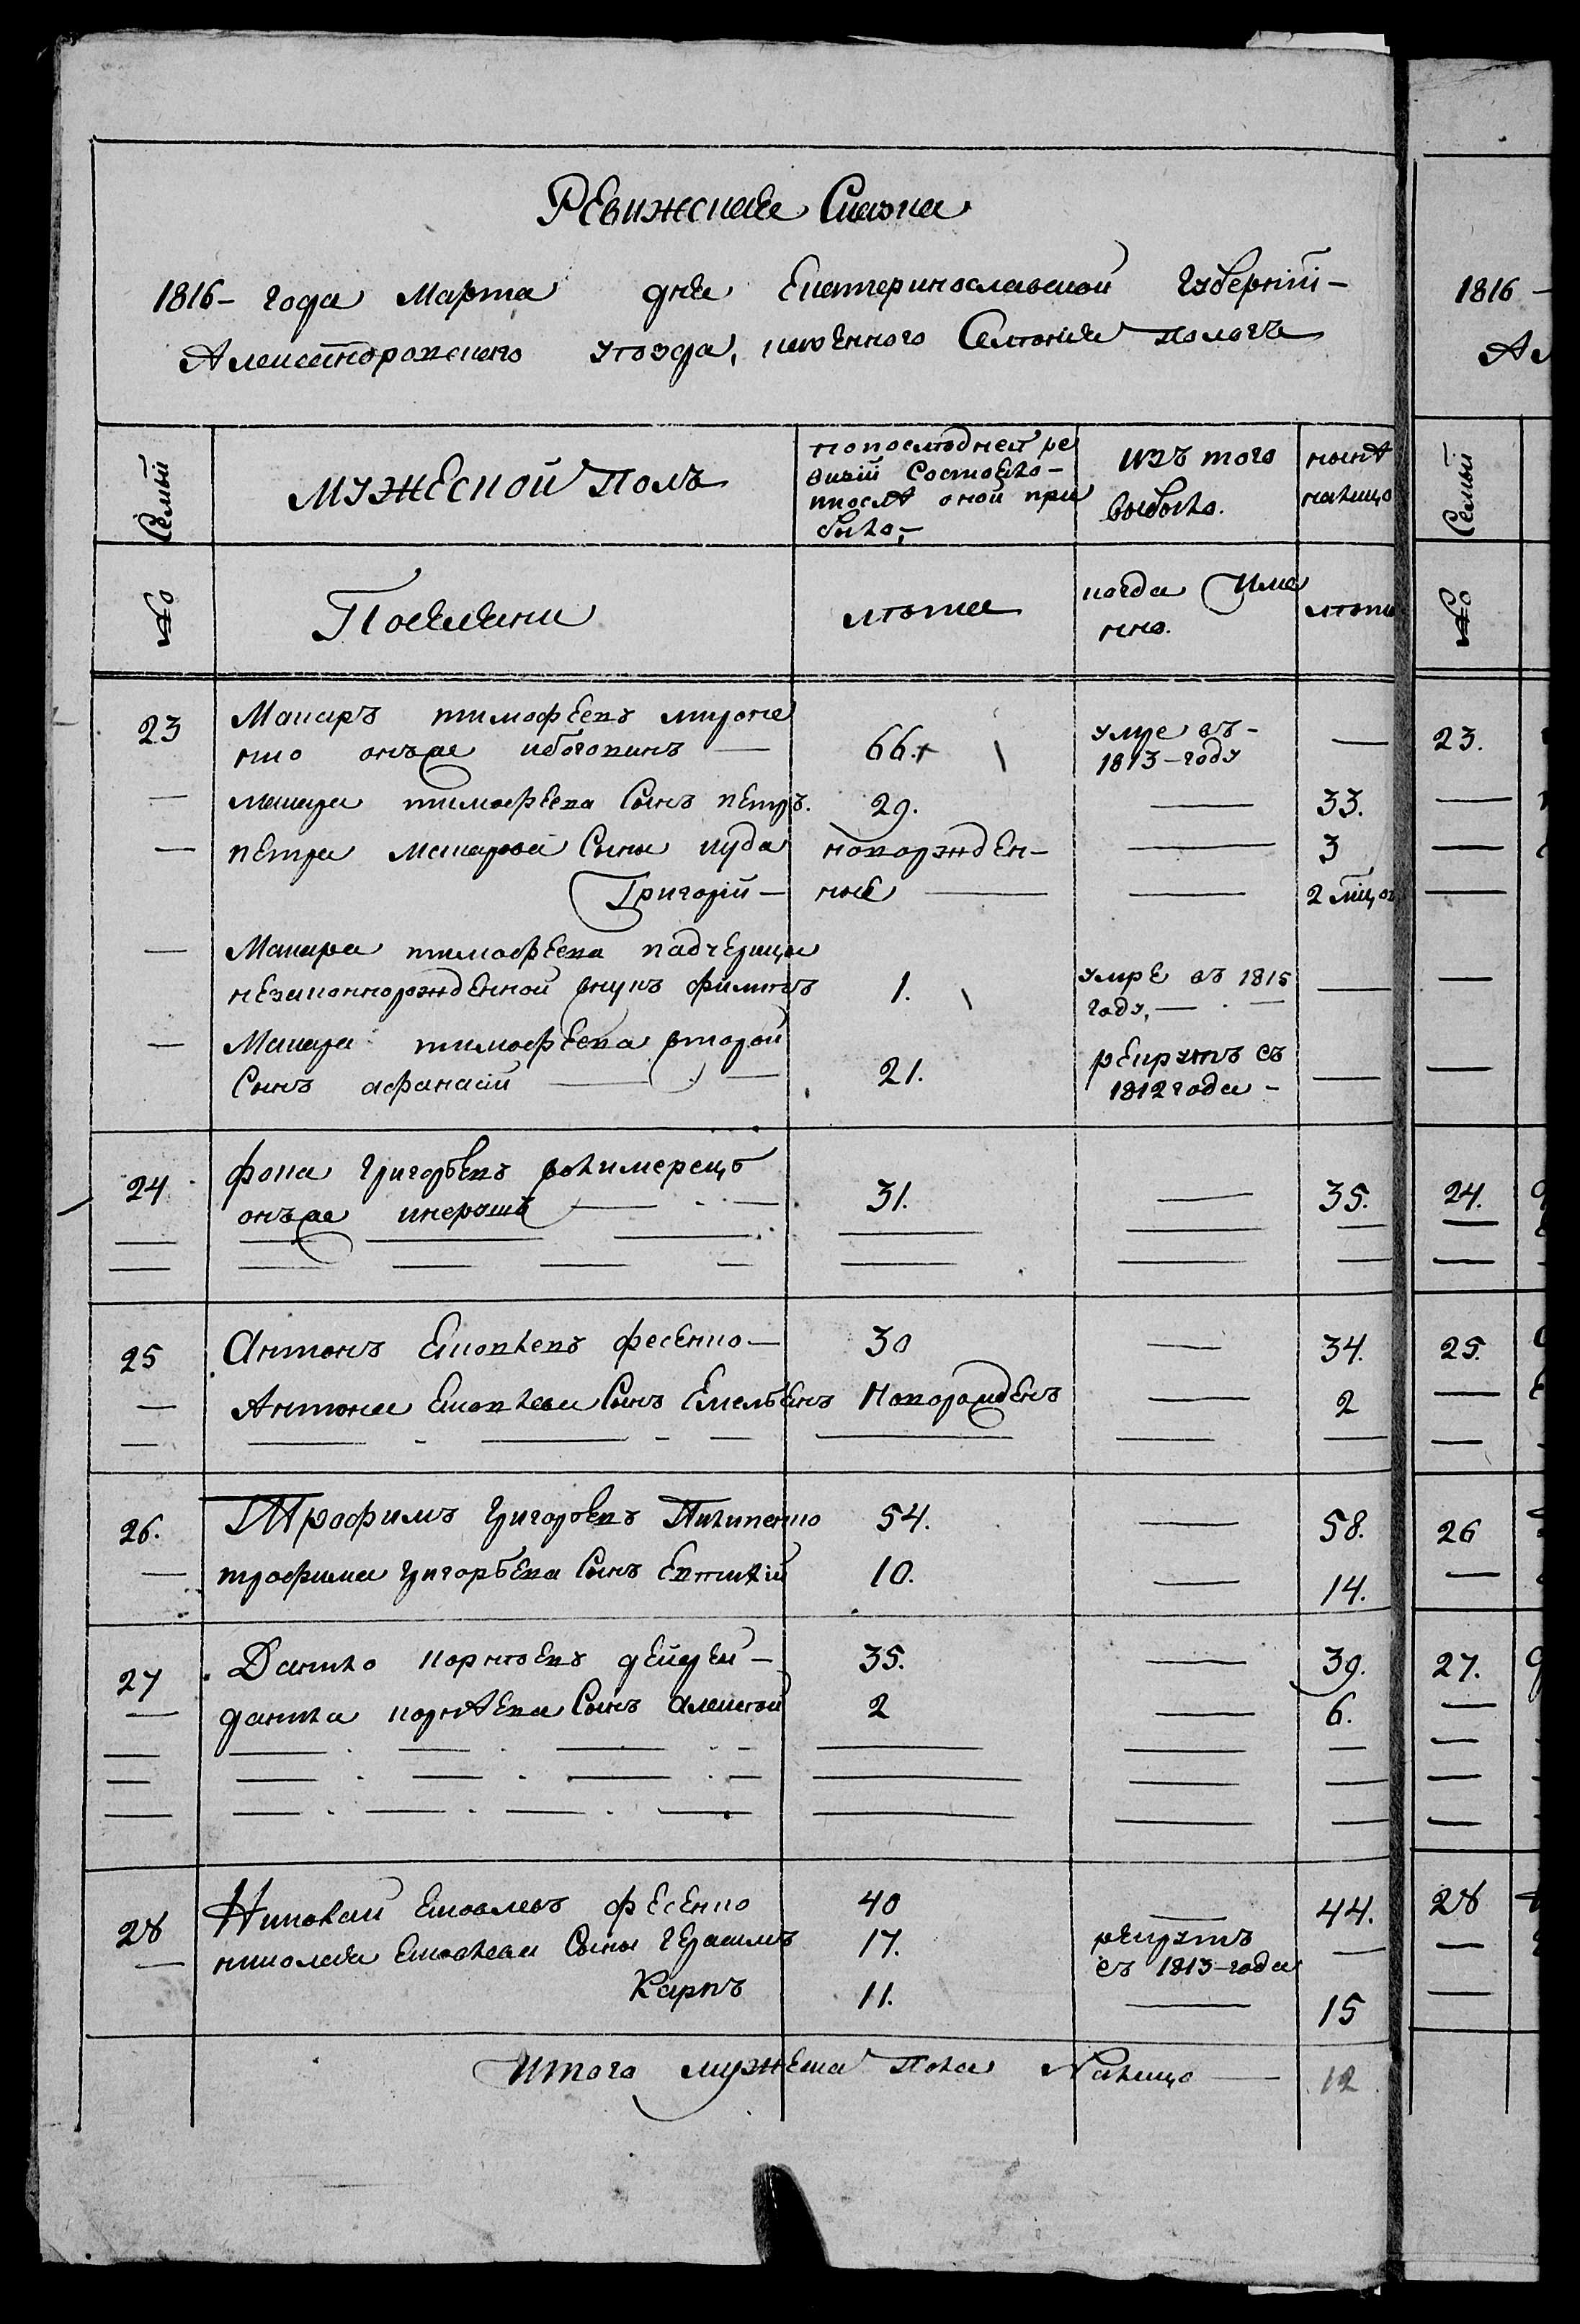 Ревижская Сказка
1816 - года Марта дня Екатеринославской Губернiи -
Александровского уѣзда, казенного Селѣнія Пологъ
Семьи
Мужеской Полъ
по последней ре
визiи Состояло -
и послѣ оной при
было, -
изъ того
выбыло.
нынѣ
налицо
№
Поселяни
лѣта
когда Име
нно.
лѣта
23
Макаръ тимофеевъ мироне
нко онъже
66.
умре въ -
1813 - году
—
— макара тимофеева Сынъ петръ. 29. — 33.
— петра макарова Сыны иуда новорожден - — 3
Григорiй - ные — — 2 мцов
— Макара тимофеева падчерицы
незаконнорожденной внукъ филипъ 1. умре въ 1815
году, —
— Макара тимофеева второй
Сынъ афанасiй — 21. рекрутъ съ
1812 года -
24 фока григорьевъ волимерецъ
онъже — 31. — 35.
25 Антонъ Яковлевъ фесенко — 30 — 34.
— Антона Яковлева Сынъ Емельянъ Новорожденъ — 2
26. Трофимъ григорьевъ Пилипенко 54. — 58.
— трофима григорьева Сынъ Евтихiй 10. — 14.
27 Данило корнѣевъ дейдей - 35. — 39.
— данила корнѣева Сынъ алексѣй 2 — 6.
28 Николай Яковлевъ фесенко 40 — 44.
— николая Яковлева Сыны герасимъ 17. рекрутъ
съ 1813 - года —
Карпъ 11. — 15
Итого мужеска пола Налицо — 12
1816 -
Ал
Семьи
№
23.
24.
25.
26
27.
28